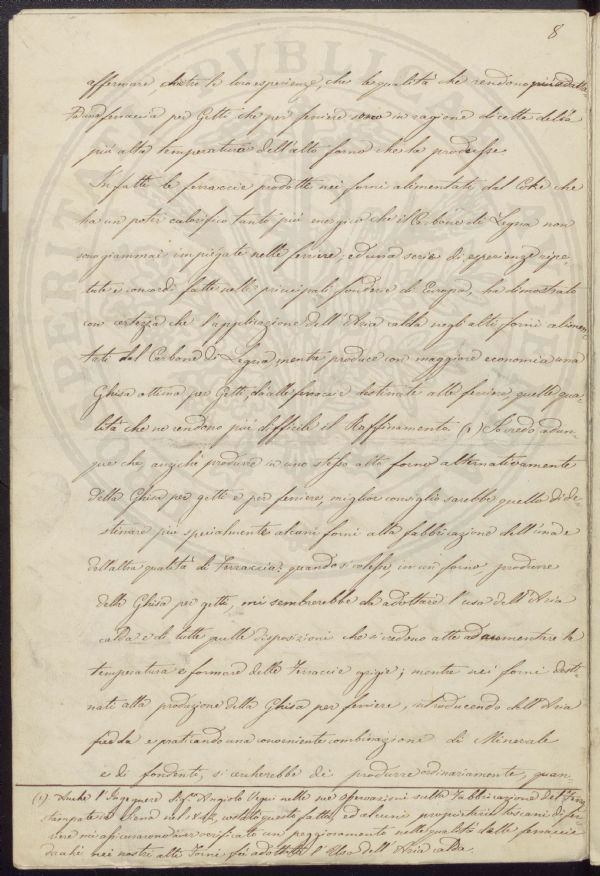 8
affermare che le loro esperienze, che le qualità che rendono più adatta
una ferraccia per Getti che per ferriere sono in ragione diretta della
più alta temperatura dell'alto forno che la produsse
Infatti le ferraccie prodotte nei forni alimentati dal Coke che
ha un poter calorifico tanto più energico che il Carbone di Legna non
sono giammai impiegate nelle ferriere; ed una serie di esperienze ripe-
tute e concordi fatte nelle principali fonderie di Europa, ha dimostrato
con certezza che l'applicazione dell'Aria calda negli alti forni alimen-
tati dal Carbone di Legna mentre produce con maggiore economia una
Ghisa ottima per Getti, dà alle ferraccie destinate alle ferriere, quelle qua-
lità che ne rendono più difficile il Raffinamento (1) Io credo adun-
que che anziché produrre in uno stesso alto forno alternativamente
della Ghisa per getti e per ferriere, miglior consiglio sarebbe quello di de-
stinare più specialmente alcuni forni alla fabbricazione dell'una e
dell'altra qualità di Ferraccia; quando si volesse in un forno produrre
della Ghisa per getti, mi sembrerebbe da adottare l'uso dell'Aria
calda e di tutte quelle disposizioni che si credono atte ad aumentare la
temperatura e formare delle Ferraccie grigie; mentre nei forni desti-
nati alla produzione della Ghisa per ferriere, introducendo dell'Aria
fredda e praticando una conveniente combinazione di Minerale
e di fondente, si cercherebbe di produrre ordinariamente, quan-
(1) Anche l'Ingegnere Sig.r Angiolo Vegni nelle sue osservazioni sulla Fabbricazione del Ferro
stampate a Siena nel 1842, constatò questo fatto, ed alcuni proprietari toscani di fer-
riere mi assicurarono essersi verificato un peggioramento nelle qualità delle ferraccie
dacché nei nostri alti Forni fu adottato l'Uso dell'Aria calda.